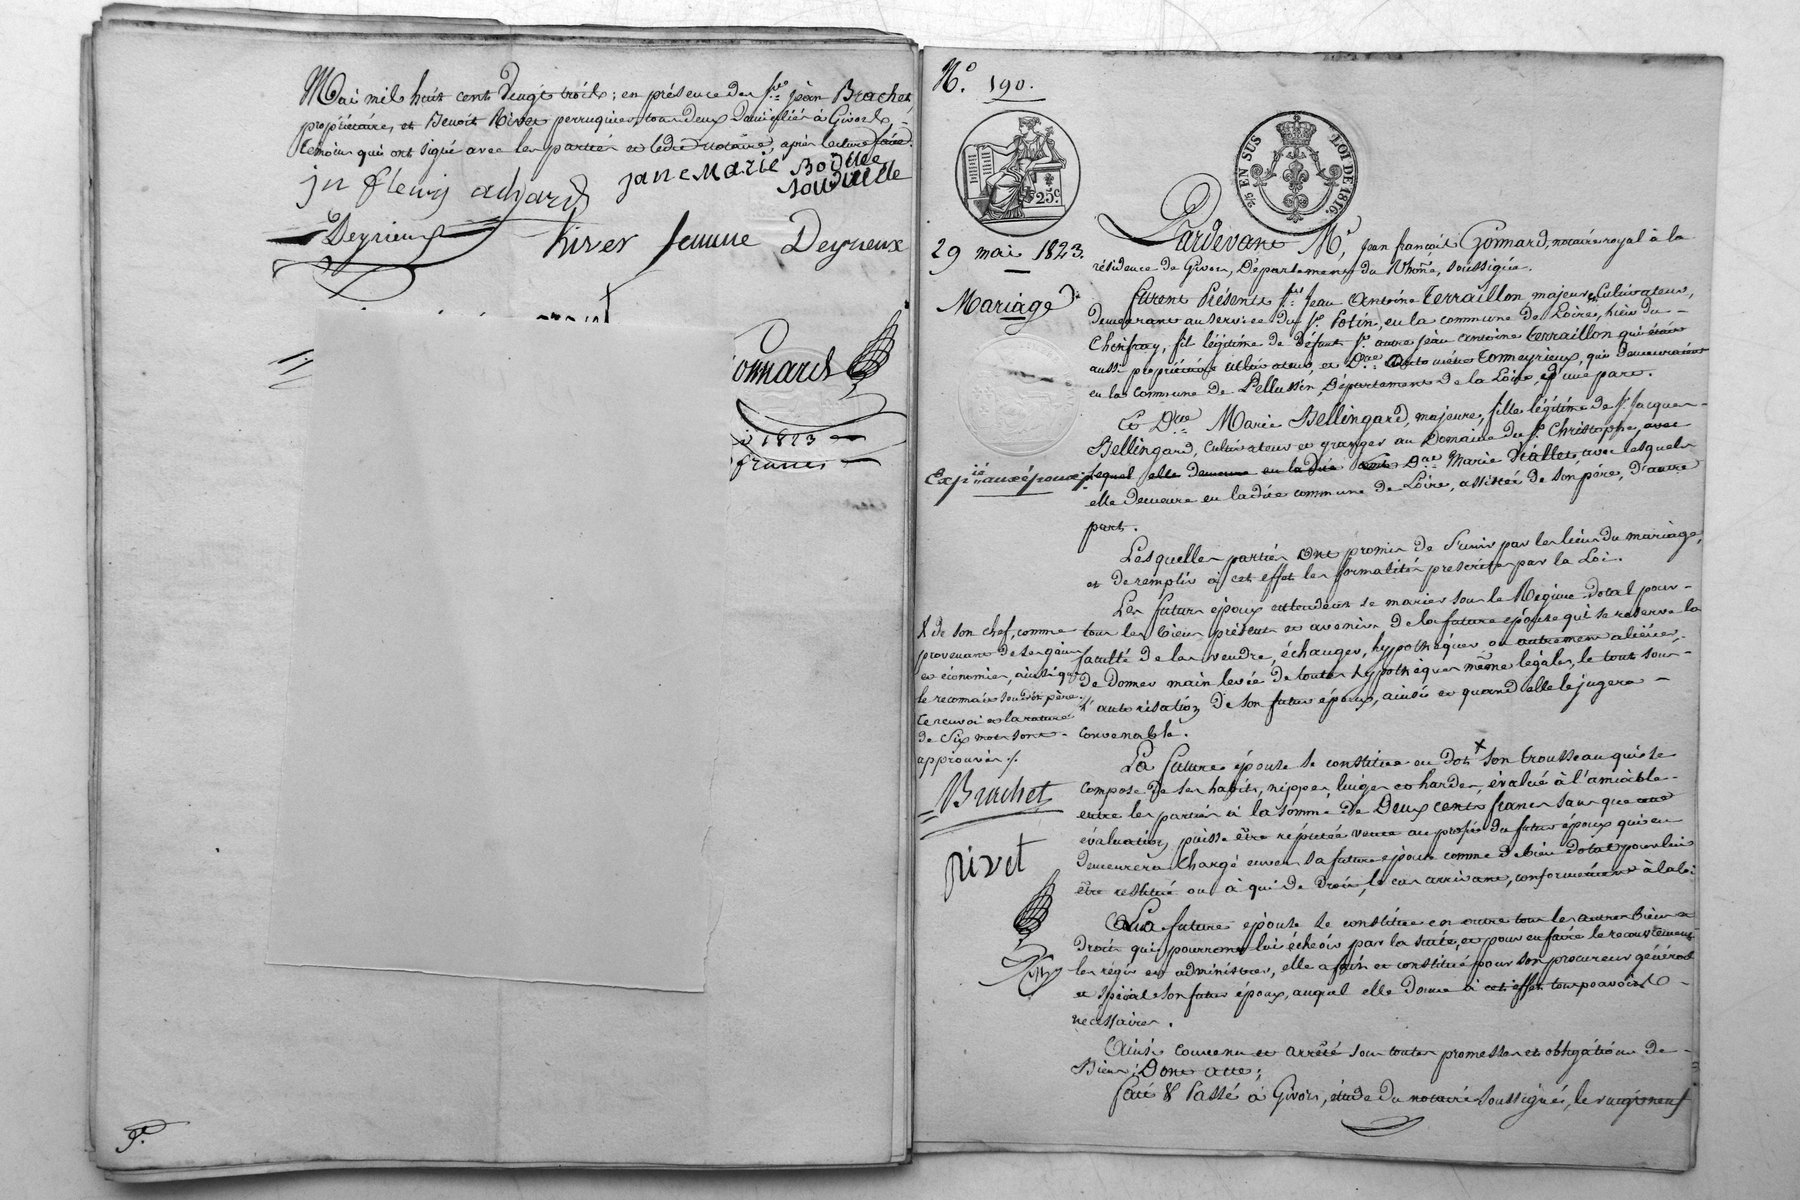 Mai mil huit cent vingt trois; en présence du Sr. jean Brachet,
propriétaire, et Benoit Rivet perruquier, tous deux domiciliés à Givors
témoins qui ont signé avec les parties et ledit notaire, après lecture faite.
jn fleury achard jane Marie
Deyrieux hiver femme Deyrieux
onnard
1823
francs
N.° 190.
25 EN SUS
LOI DE 1816.
25c
29 mai 1823.
Pardevant Me. Jean françois Gonnard, notaire royal à la
résidence de Givors, Département du Rhône, soussigné.
Mariage
furent Présents Sr. Jean Antoine Terraillon, majeur, Cultivateur,
demeurant au service du Sr. Potin, en la commune de Loire, lieu du
Chenfray, fils légitime de défunt Sr. autre jean antoine terraillon qui était
aussi propriétaire cultivateur, et Dme. Antoinette Tomeyrieux, qui demeuraient
en la commune de Pellussin, Département de la Loire, d'une part.
Et Dlle. Marie Bellingard, majeure, fille légitime de Sr. Jacques
Bellingard, Cultivateur et granger au Domaine du Sr. Christophe, avec
Expié. aux époux
lequel elle demeure en la dite Dme. Marie Viallet, avec lesquels
elle demeure en ladite commune de Loire, assistée de son père, d'autre
part.
Lesquelles parties ont promis de s'unir par les liens du mariage,
et de remplir à cet effet les formalités prescrites par la Loi.
Les futurs époux entendent se marier sous le Régime dotal pour
tous les biens présents et avenirs de la future épouse qui se réserve la
faculté de les vendre, échanger, hypothéquer ou autrement aliéner,
de donner main levée de toutes hypothèques même légales, le tout sous
l'autorisation de son futur époux, ainsi et quand elle le jugera
convenable.
X de son chef, comme
provenant de ses gains
et économies, ainsi que
le reconnait son dit père.
Ce renvoi et la rature
de Six mots sont
approuvés /.
Brachet
rivet
La future épouse se constitue en dot X son trousseau qui se
compose de ses habits, nippes, linges et hardes, évalué à l'amiable
entre les parties à la somme de Deux cents francs sans que cette
évaluation puisse être réputée vente au profit du futur époux qui en
demeurera chargé envers sa future épouse comme de bien dotal pour lui
être restitué ou à qui de droit, le cas arrivant, conformément à la loi.
La future épouse se constitue en outre tous les autres biens et
droits qui pourront lui échéoir par la suite, et pour en faire le recouvrement
les régir et administrer, elle a fait et constitué pour son procureur général
et spécial son futur époux, auquel elle donne à cet effet tous pouvoirs
nécessaires.
Ainsi convenu et arrêté sous toutes promesses et obligations de
Biens; Dont acte;
fait & Passé à Givors, étude du notaire soussigné, le vingt neuf